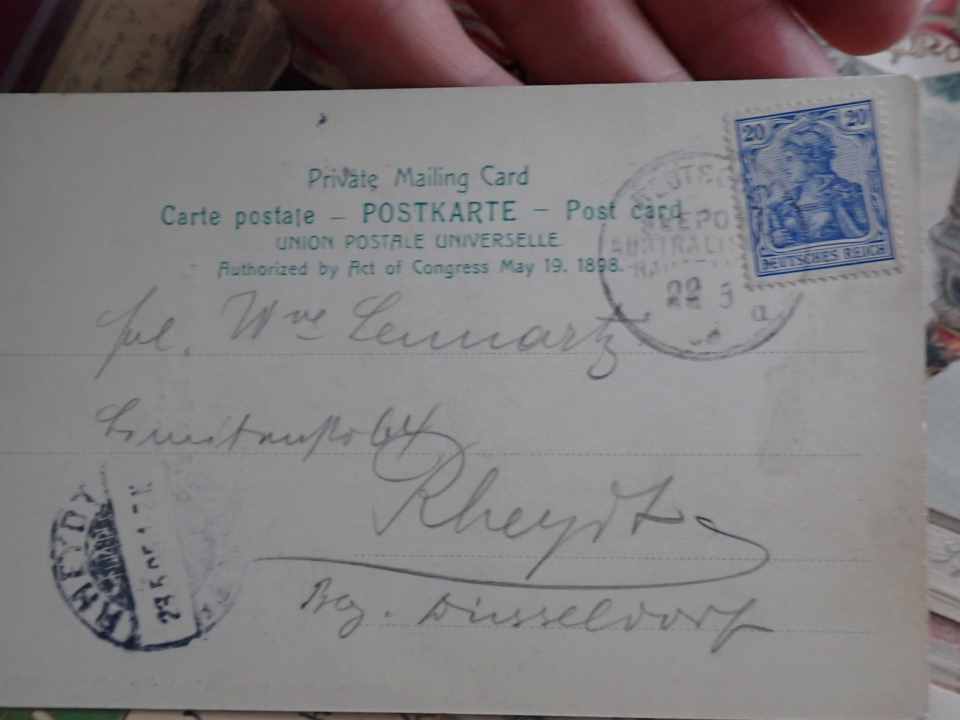 Private Mailing Card
Carte postale – POSTKARTE – Post card
UNION POSTALE UNIVERSELLE
Authorized by Act of Congress May 19. 1898.
20 20
DEUTSCHES REICH
DEUTSCH
SEEPO
AUSTRALI
22 5
a
Wwe Lennartz
64
Rheydt
Bez. Düsseldorf
RHEYDT
23.5